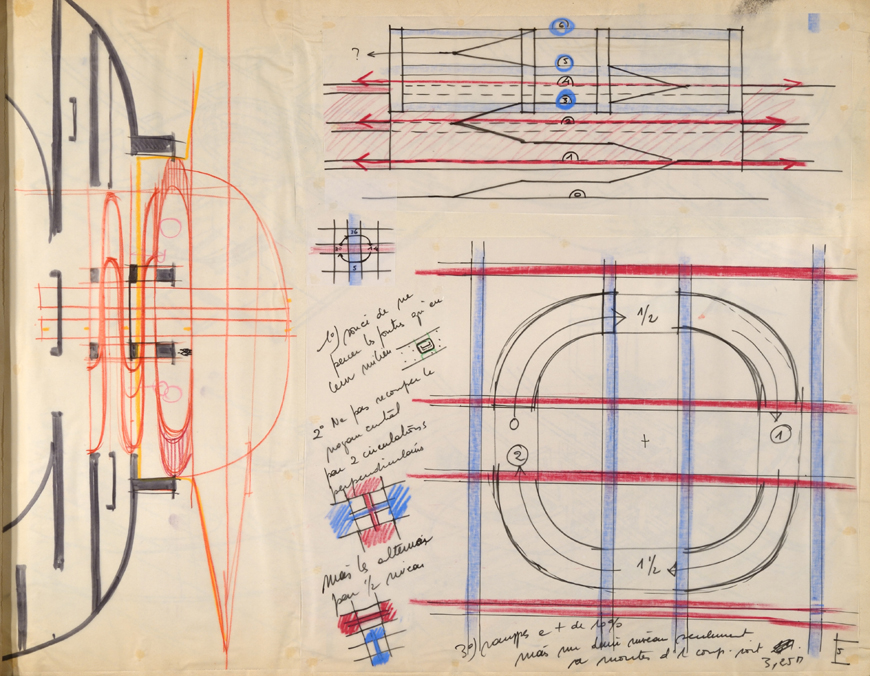 ?
6
5
4
3
2
1
0
1/2
1
2
1 1/2
1°) souci de ne
percer les poutres qu'en
leur milieu
2° Ne pas recouper le
noyau central
par 2 circulations
perpendiculaires
mais les alterner
par 1/2 niveau
3°) rampes à + de 10%
mais un demi niveau seulement
à monter d'1 coup. soit
3,25m
5